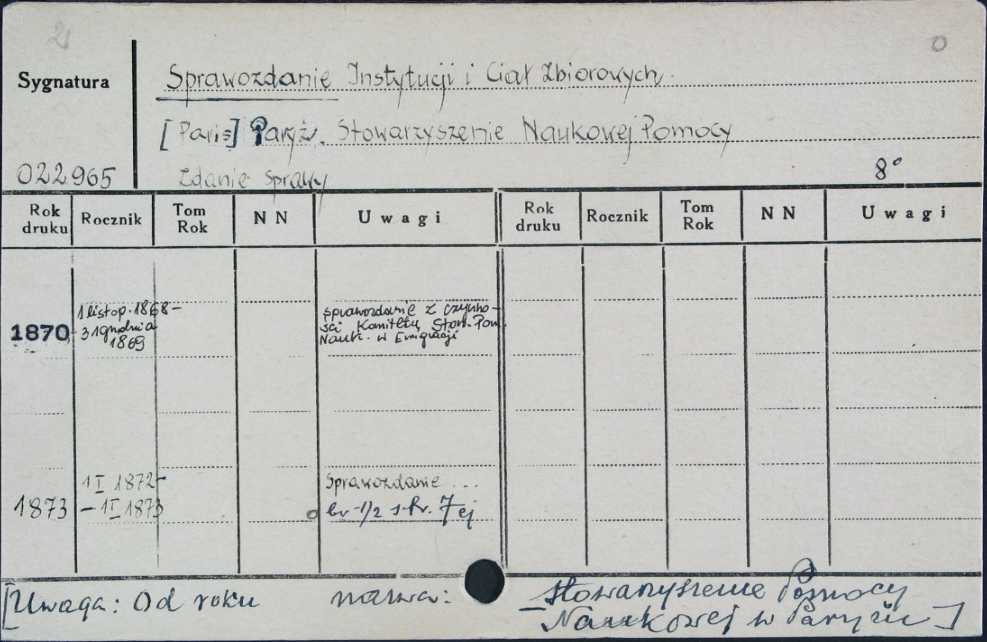 2 0
Sygnatura
Sprawozdanie Instytucji i Ciał Zbiorowych.
[Paris] Paryż. Stowarzyszenie Naukowej Pomocy
022965 Zdanie sprawy 8°
Rok druku Rocznik Tom Rok N N Uwagi Rok druku Rocznik Tom Rok N N Uwagi
1870 1 listop. 1868 – 31 grudnia 1869
sprawozdanie z czynno-
ści Komitetu Stow. Pom.
Nauk. w Emigracji
1873 1 I 1872 – – 1 I 1873
Sprawozdanie ...
br 1/2 s kr. 7ej
[Uwaga: Od roku nazwa: Stowarzyszenie Pomocy
Naukowej w Paryżu]